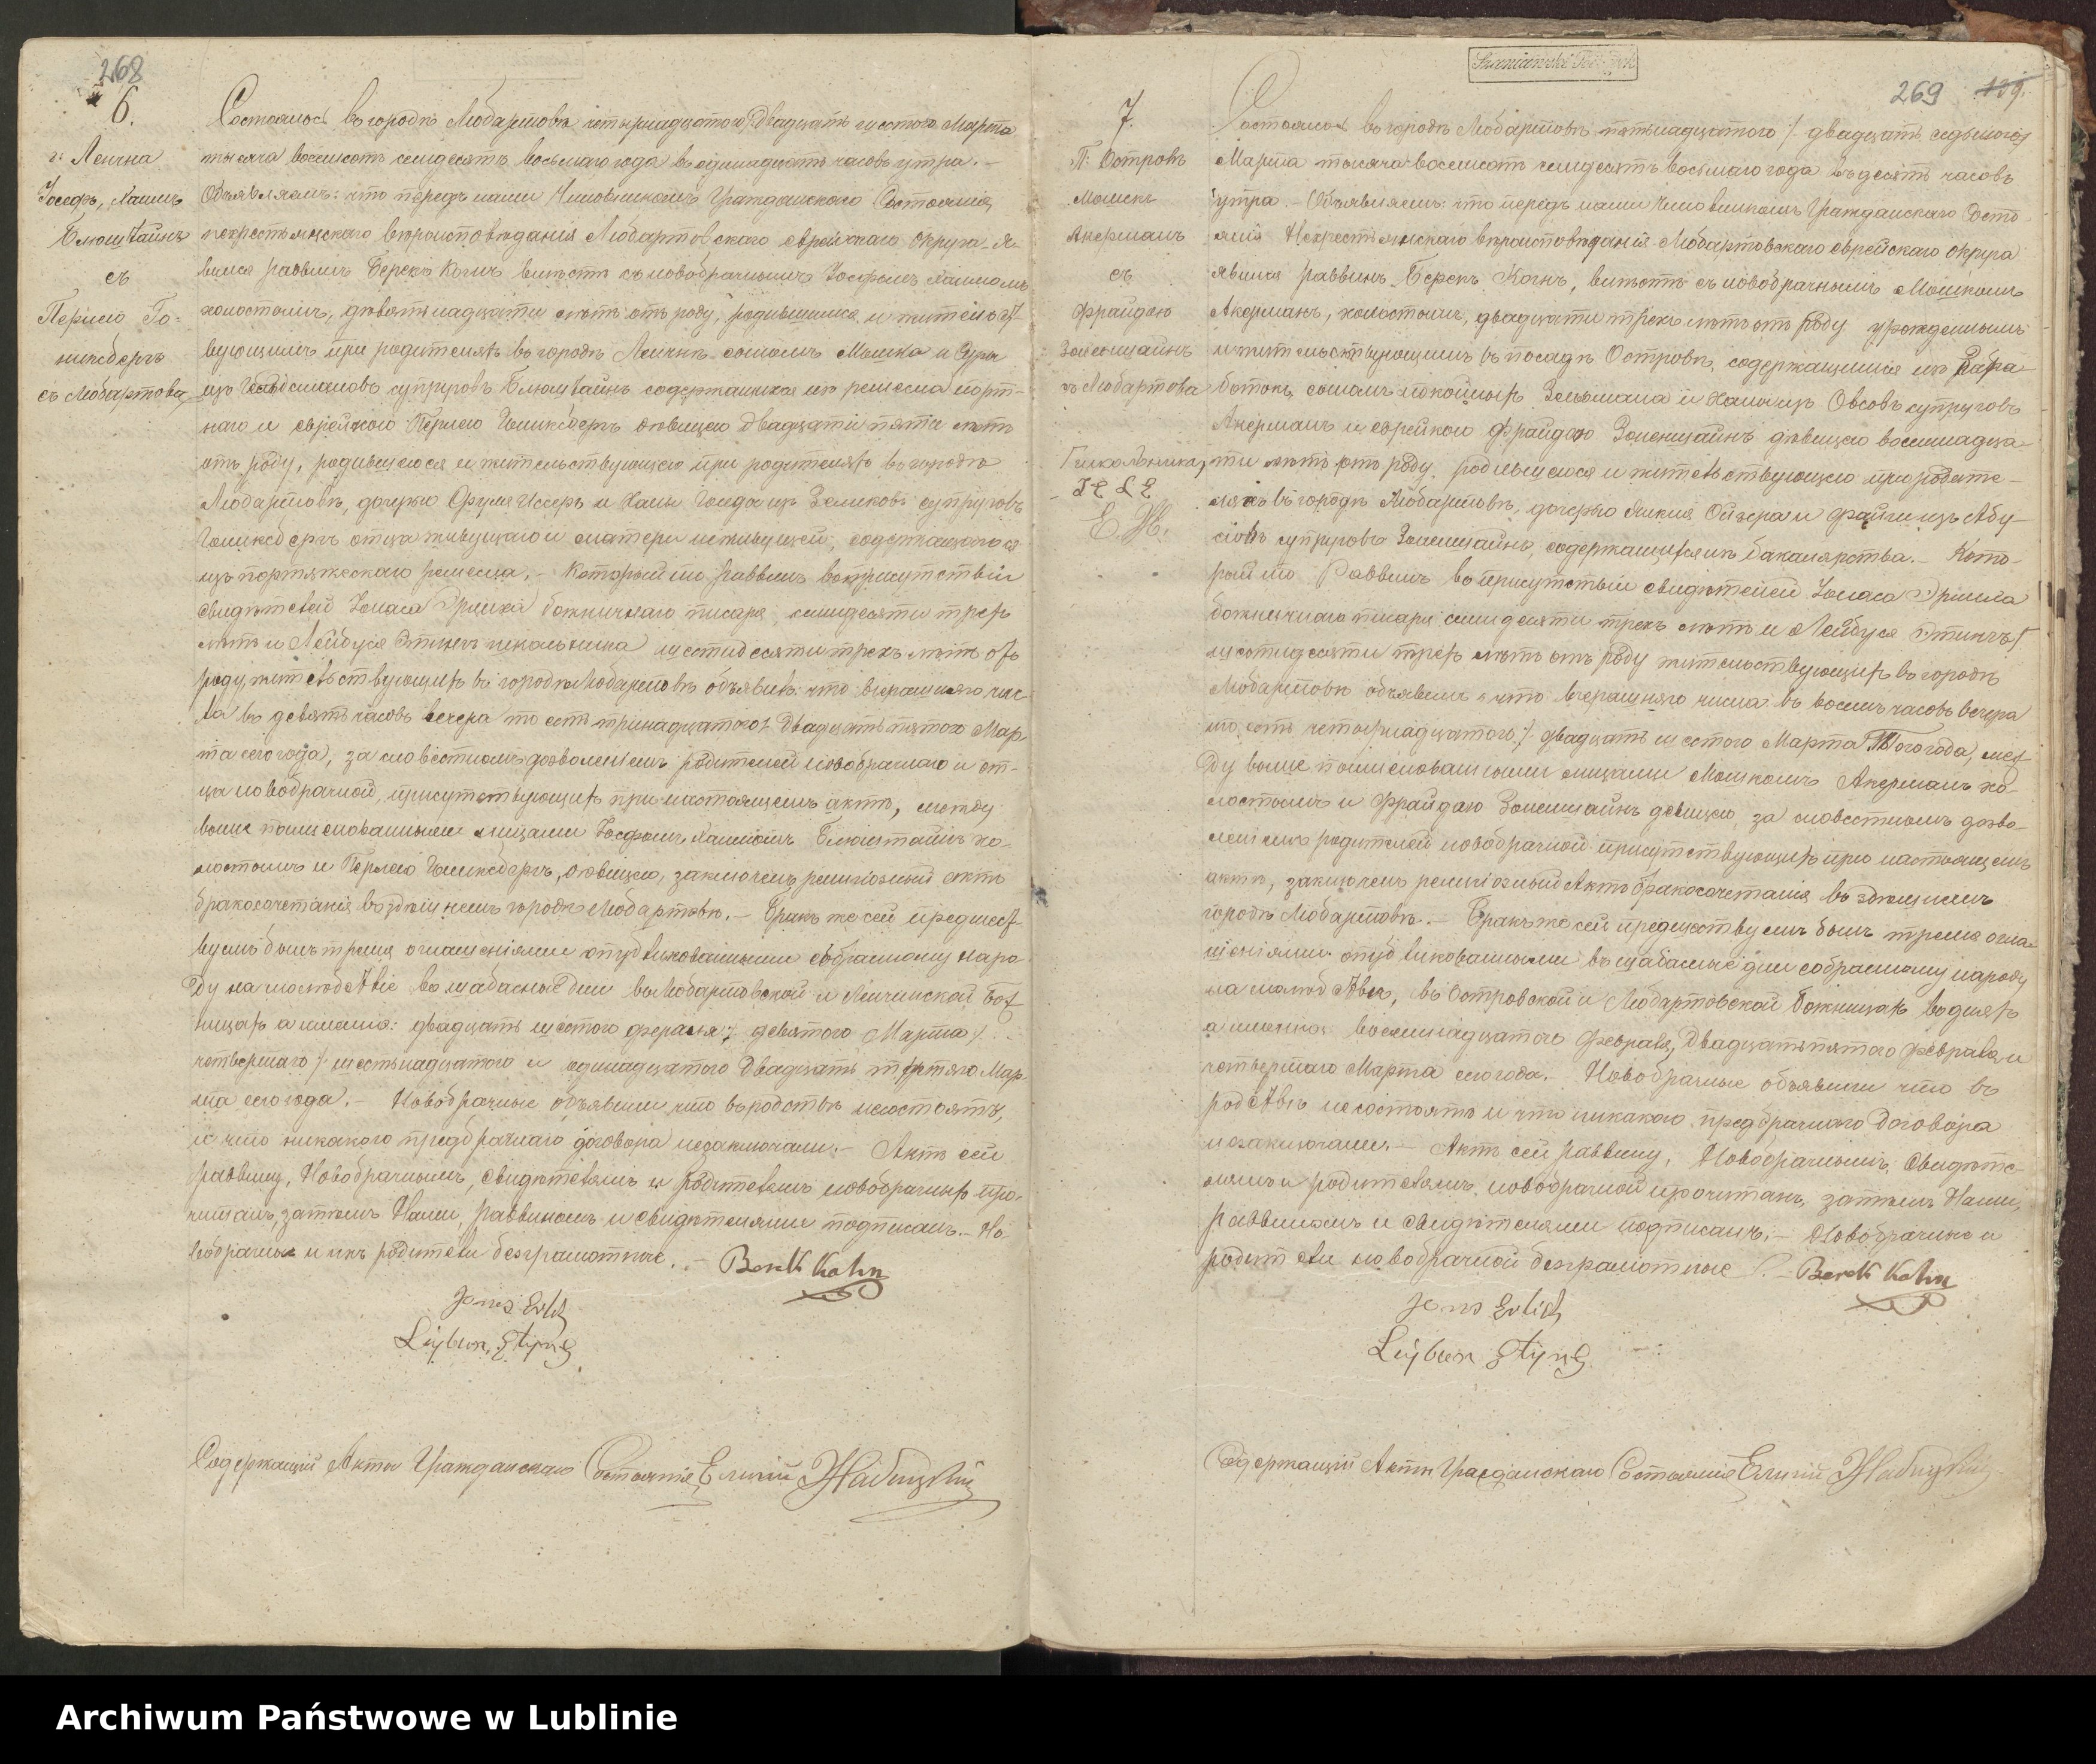 268
6.
г: Ленчна
Іосефъ, Хаимъ
Блюштайнъ
съ
Перлею Го-
никсбергъ
съ Любартова
Состоялось въ городѣ Любартовѣ четырнадцатого/двадцать шестого Марта
тысяча восемсотъ семдесятъ восьмаго года въ одинадцать часовъ утра.-
Объявляемъ: что передъ нами Чиновникомъ Гражданского Состоянія
нехрестьянскаго вѣроисповѣданія Любартовскаго еврейскаго Округа Я-
вился раввинъ Берекъ Когнъ вмѣстѣ съ новобрачнымъ Іосефомъ Хаимомъ
холостымъ, девятьнадцати лѣтъ отъ роду, родившимся и жительст-
вующимъ при родителяхъ въ городѣ Ленчнѣ сыномъ Мошка и Суры
изъ супруговъ Блюштайнъ содержащихся изъ ремесла порт-
наго и еврейкою Перлею Гониксбергъ дѣвицею двадцати пяти лѣтъ
отъ роду, родившеюся и жительствующею при родителяхъ въ городѣ
Любартовѣ, дочерью и Ханы супруговъ
Гониксбергъ отца живущаго и матери неживущей, содержащагося
изъ портняжескаго ремесла.- Который то раввинъ въ присутствіи
свидѣтелей Іонаса Эрлиха божничнаго писаря, семидесяти трехъ
лѣтъ и Лейбуся Этингъ школьника шестидесяти трехъ лѣтъ отъ
роду, жительствующихъ въ городѣ Любартовѣ объявилъ: что вчерашняго чис-
ла въ девять часовъ вечера то есть тринадцатаго/двадцать пятого Мар-
та сего года, за словестнымъ дозволеніемъ родителей новобрачнаго и от-
ца новобрачной, присутствующихъ при настоящемъ актѣ, между
выше поименованными лицами Іосефомъ Хаимомъ Блюштайнъ хо-
лостымъ и Перлею Гониксбергъ, дѣвицею, заключенъ религіозный актъ
бракосочетанія въ здѣшнемъ городѣ Любартовѣ.- Бракъ же сей предшест-
вуемъ былъ тремя оглашеніями опубликованными собранному наро-
ду на молебствіе въ шабасные дни въ Любартовской и Ленчинской Бож-
ницахъ а именно: двадцать шестого февраля/ девятого Марта/
четвертаго/ шестьнадцатого и одинадцатого/двадцать третяго Мар-
та сего года.- Новобрачные объявили что въ родствѣ несостоятъ,
и что никакого предбрачнаго договора незаключали.- Актъ сей
раввину, Новобрачнымъ, свидѣтелямъ и родителямъ новобрачныхъ про-
читанъ, затѣмъ Нами, раввиномъ и свидѣтелями подписанъ.- Но-
вобрачные и ихъ родители безграмотные.- Berek Kohn
Jonas Erlich
Leybus Etyng
Содержащій Акты Гражданскаго Состоянія
Szaniawski
269
109.
7.
П: Островъ
Мошекъ
Акерманъ
съ
Фрайдою
Зоненщайнъ
съ Любартова
Состоялось въ городѣ Любартовѣ пятьнадцатого/ двадцать седьмого
Марта тысяча восемсотъ семдесятъ восьмаго года въ десять часовъ
утра.- Объявляемъ: что передъ нами Чиновникомъ Гражданскаго Состо-
янія Нехрестьянскаго вѣроисповѣданія Любартовскаго еврейскаго округа
явился раввинъ Берекъ Когнъ, вмѣстѣ съ новобрачнымъ Мошкомъ
Акерманъ, холостымъ, двадцати трехъ лѣтъ отъ роду урожденнымъ
и жительствующимъ въ посадѣ Островѣ, содержащимся изъ Зара-
ботокъ, сыномъ покойныхъ Зельмана и Ханы изъ Овсовъ супруговъ
Акерманъ и еврейкою Фрайдою Зоненщайнъ дѣвицею восемнадца-
ти лѣтъ отъ роду, родившеюся и жительствующею при родите-
ляхъ въ городѣ Любартовѣ, дочерью Ойзера и Файги изъ Абу-
супруговъ Зоненщайнъ, содержащихся изъ бакалярства.- Кото-
рый то Раввинъ въ присутствіи свидѣтелей Іонаса Эрлиха
божничнаго писаря семидесяти трехъ лѣтъ и Лейбуся Этингъ
шестидесяти трехъ лѣтъ отъ роду жительствующихъ въ городѣ
Любартовѣ объявилъ: что вчерашняго числа въ восемь часовъ вечера
то есть четырнадцатого/ двадцать шестого Марта того года, меж-
ду выше поименованными лицами Мошкомъ Акерманъ хо-
лостымъ и Фрайдою Зоненщайнъ дѣвицею, за словестнымъ дозво-
леніемъ родителей новобрачной присутствующихъ при настоящемъ
актѣ, заключенъ религіозный Актъ бракосочетанія въ здѣшнемъ
городѣ Любартовѣ.- Бракъ же сей предшествуемъ былъ тремя огла-
шеніями опубликованными въ шабасные дни собранному народу
на молебствіе, въ Островской и Любартовской Божницахъ въ дняхъ
а именно восемнадцатого Февраля, двадцать пятого Февраля и
четвертаго Марта сего года.- Новобрачные объявили что въ
родствѣ несостоятъ и что никакого предбрачнаго договора
незаключали.- Актъ сей раввину, Новобрачнымъ, Свидѣте-
лямъ и родителямъ новобрачной прочитанъ, затѣмъ Нами,
раввиномъ и свидѣтелями подписанъ.- Новобрачные и
родители новобрачной безграмотные.- Berek Kohn
Jonas Erlich
Leybus Etyng
Содержащій Акты Гражданскаго Состоянія
Archiwum Państwowe w Lublinie